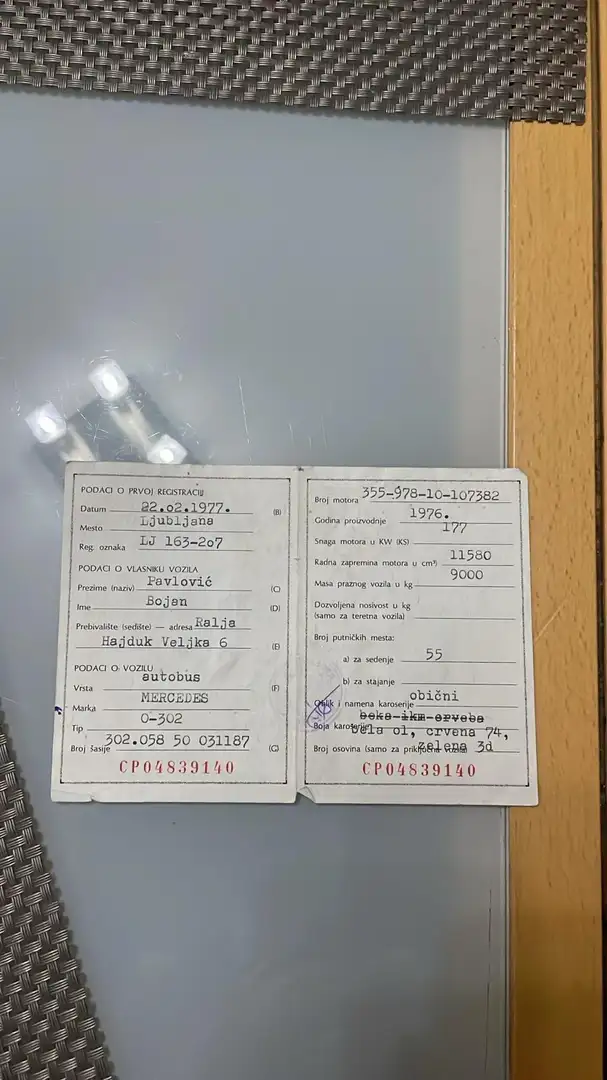 PODACI O PRVOJ REGISTRACIJI
Datum 22.o2.1977. (B)
Mesto Ljubljana
Reg. oznaka LJ 163-2o7
PODACI O VLASNIKU VOZILA
Prezime (naziv) Pavlović (C)
Ime Bojan (D)
Prebivalište (sedište) — adresa Ralja
Hajduk Veljka 6 (E)
PODACI O VOZILU
Vrsta autobus (F)
Marka MERCEDES
Tip O-302
Broj šasije 302.058 50 031187 (G)
CP04839140
Broj motora 355-978-10-107382
Godina proizvodnje 1976.
Snaga motora u KW (KS) 177
Radna zapremina motora u cm³) 11580
Masa praznog vozila u kg 9000
Dozvoljena nosivost u kg
(samo za teretna vozila)
Broj putničkih mesta:
a) za sedenje 55
b) za stajanje
Oblik i namena karoserije obični
Boja karoserije bela o1, crvena 74,
Broj osovina (samo za priključna vozila) zelena 3d
CP04839140